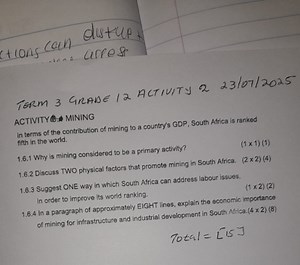 ctions can distur
TERM 3 GRADE 12 ACTIVITY 2 23/07/2025
ACTIVITY MINING
In terms of the contribution of mining to a country's GDP, South Africa is ranked
fifth in the world.
1.6.1 Why is mining considered to be a primary activity? (1 x 1) (1)
1.6.2 Discuss TWO physical factors that promote mining in South Africa. (2 x 2) (4)
1.6.3 Suggest ONE way in which South Africa can address labour issues.
In order to improve its world ranking. (1 x 2) (2)
1.6.4 In a paragraph of approximately EIGHT lines, explain the economic importance
of mining for infrastructure and industrial development in South Africa.(4 x 2) (8)
Total = [15]